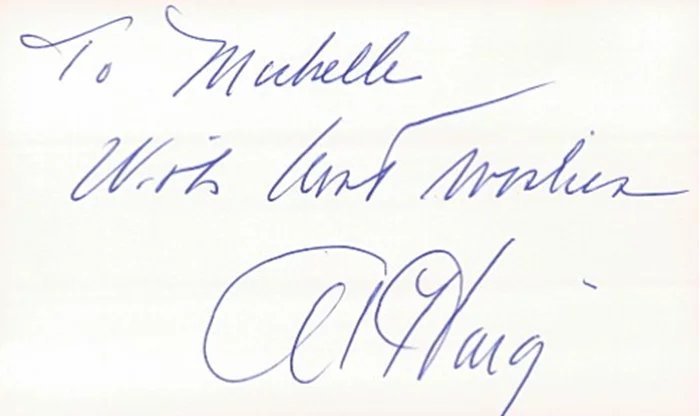 To Michelle
With best wishes
Al Haig